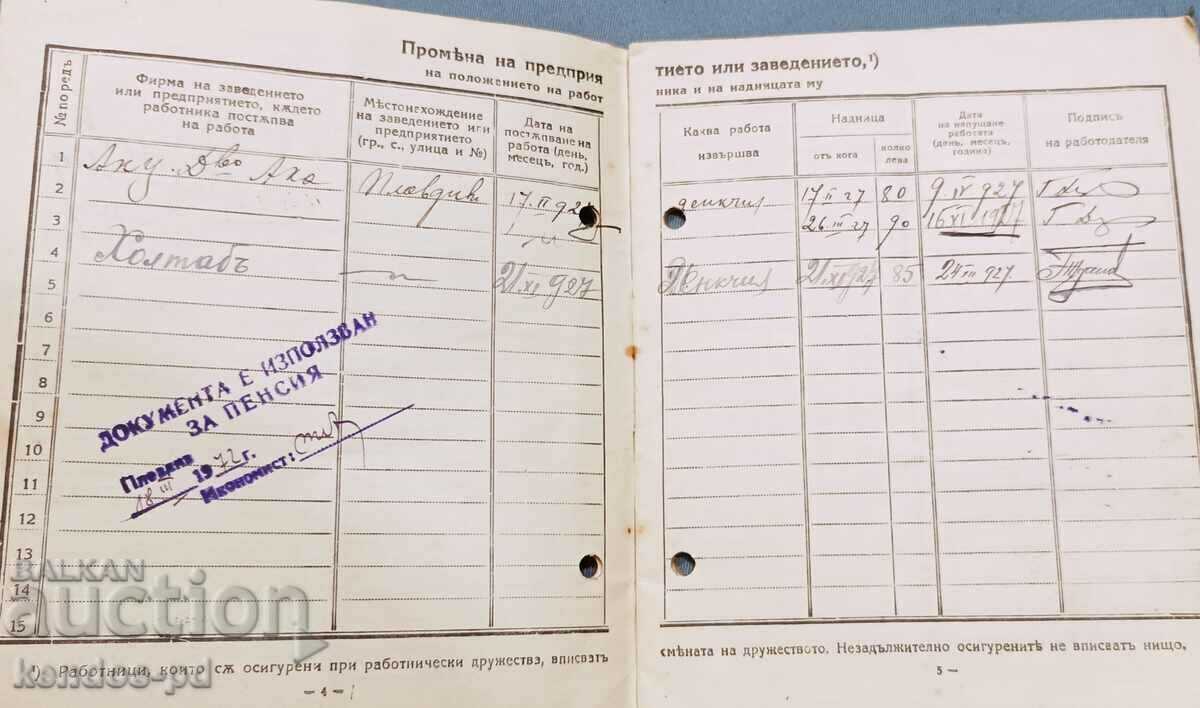 Промѣна на предприя
на положението на работ
№ поредъ
Фирма на заведението
или предприятието, кѫдето
работника постѫпва
на работа
Мѣстонахождение
на заведението или
предприятието
(гр., с., улица и №)
Дата на
постѫпване на
работа (день,
месецъ, год.)
1
Аку. Д-во Аха
Пловдивъ
17.II 927
2
3
4
Холтабъ
— " —
21 XI 927
5
6
7
8
9
10
11
12
13
14
15
ДОКУМЕНТА Е ИЗПОЛЗВАН
ЗА ПЕНСИЯ
18 III 1972 г.
Икономист:
¹) Работници, които сѫ осигурени при работнически дружества, вписватъ
— 4 —
тието или заведението,¹)
ника и на надницата му
Каква работа
извършва
Надница
отъ кога
колко
лева
Дата
на напущане
работата
(день, месецъ,
година)
Подпись
на работодателя
денкчия 17 II 27 80 9 IV 927
26 III 27 90 16 XI 1927
Денкчия 21 XI 927 85 24 III 927
смѣната на дружеството. Незадължително осигуренитѣ не вписватъ нищо.
5 —
BALKAN
auction
kendos-pd